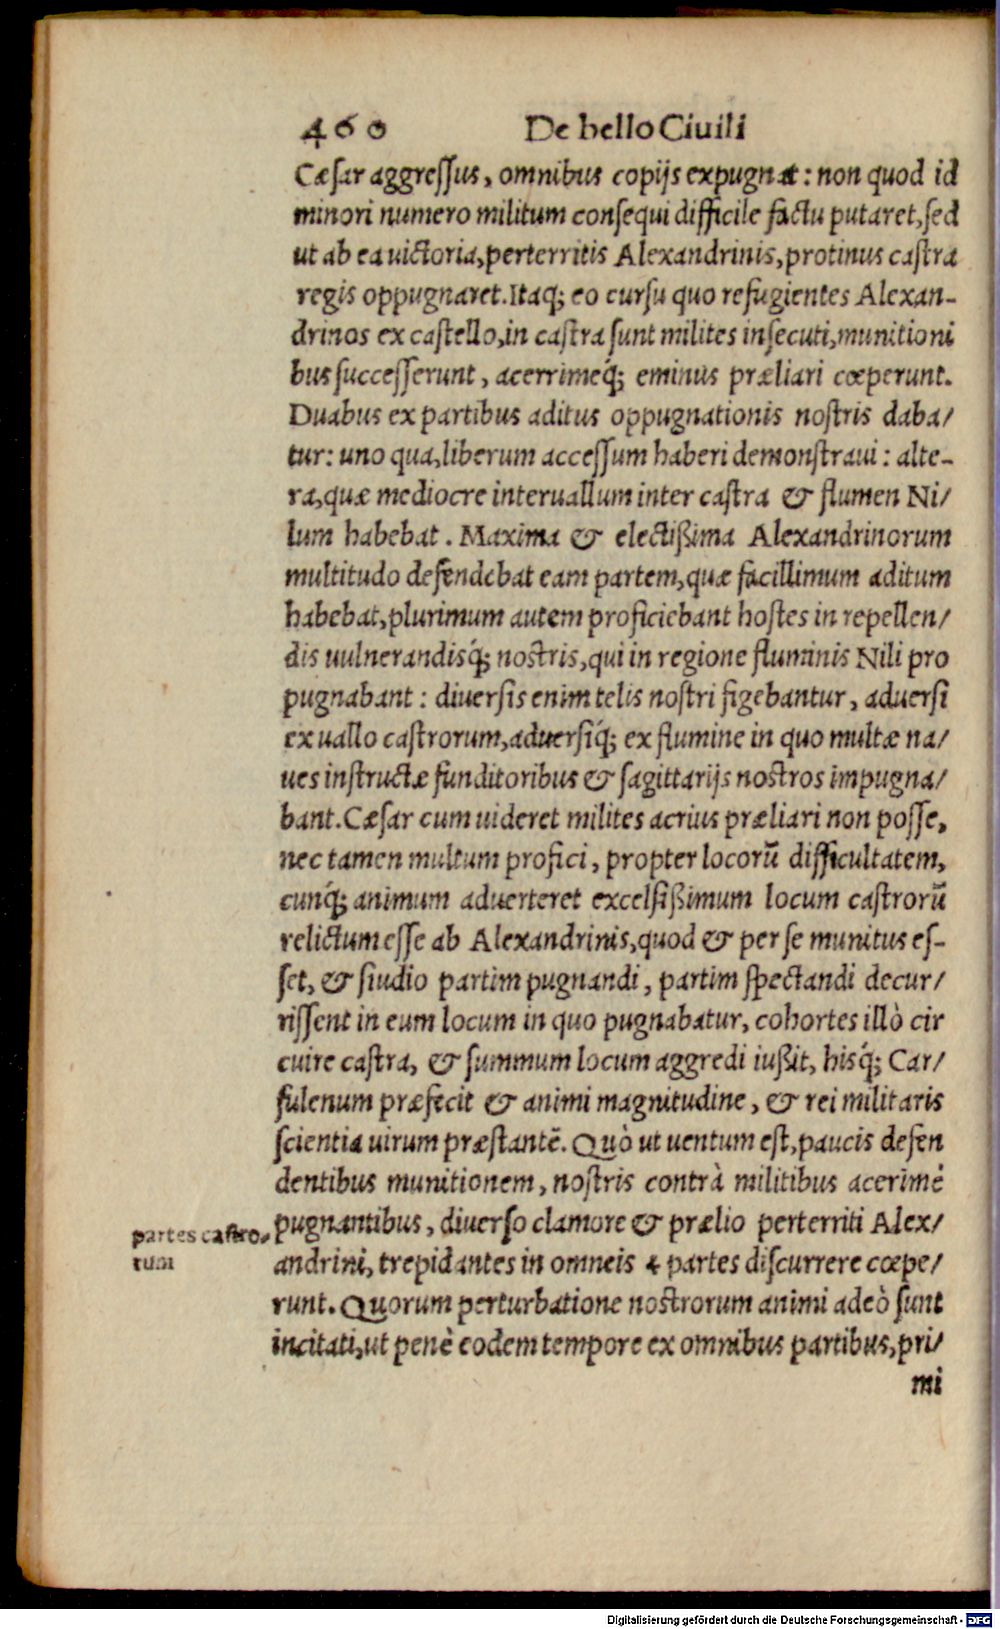 460 De bello Ciuili
Cæsar aggressus, omnibus copijs expugnat: non quod id
minori numero militum consequi difficile factu putaret, sed
ut ab ea uictoria, perterritis Alexandrinis, protinus castra
regis oppugnaret. Itaq; eo cursu quo refugientes Alexan-
drinos ex castello, in castra sunt milites insecuti, munitioni
bus successerunt, acerrimeq́; eminus præliari cœperunt.
Duabus ex partibus aditus oppugnationis nostris daba/
tur: uno qua, liberum accessum haberi demonstraui: alte-
ra, quæ mediocre interuallum inter castra & flumen Ni/
lum habebat. Maxima & electißima Alexandrinorum
multitudo defendebat eam partem, quæ facillimum aditum
habebat, plurimum autem proficiebant hostes in repellen/
dis uulnerandisq́; nostris, qui in regione fluminis Nili pro
pugnabant: diuersis enim telis nostri figebantur, aduersi
ex uallo castrorum, aduersiq́; ex flumine in quo multæ na/
ues instructæ funditoribus & sagittarijs nostros impugna/
bant. Cæsar cum uideret milites acrius præliari non posse,
nec tamen multum profici, propter locorū difficultatem,
cunq́; animum aduerteret excelsißimum locum castrorū
relictum esse ab Alexandrinis, quod & per se munitus es-
set, & studio partim pugnandi, partim spectandi decur/
rissent in eum locum in quo pugnabatur, cohortes illò cir
cuire castra, & summum locum aggredi iußit, hisq́; Car/
fulenum præfecit & animi magnitudine, & rei militaris
scientia uirum præstantē. Quò ut uentum est, paucis defen
dentibus munitionem, nostris contrà militibus acerimé
pugnantibus, diuerso clamore & prælio perterriti Alex/
andrini, trepidantes in omneis 4 partes discurrere cœpe/
runt. Quorum perturbatione nostrorum animi adeò sunt
incitati, ut penè eodem tempore ex omnibus partibus, pri/
mi
partes castro-
rum
Digitalisierung gefördert durch die Deutsche Forschungsgemeinschaft - DFG